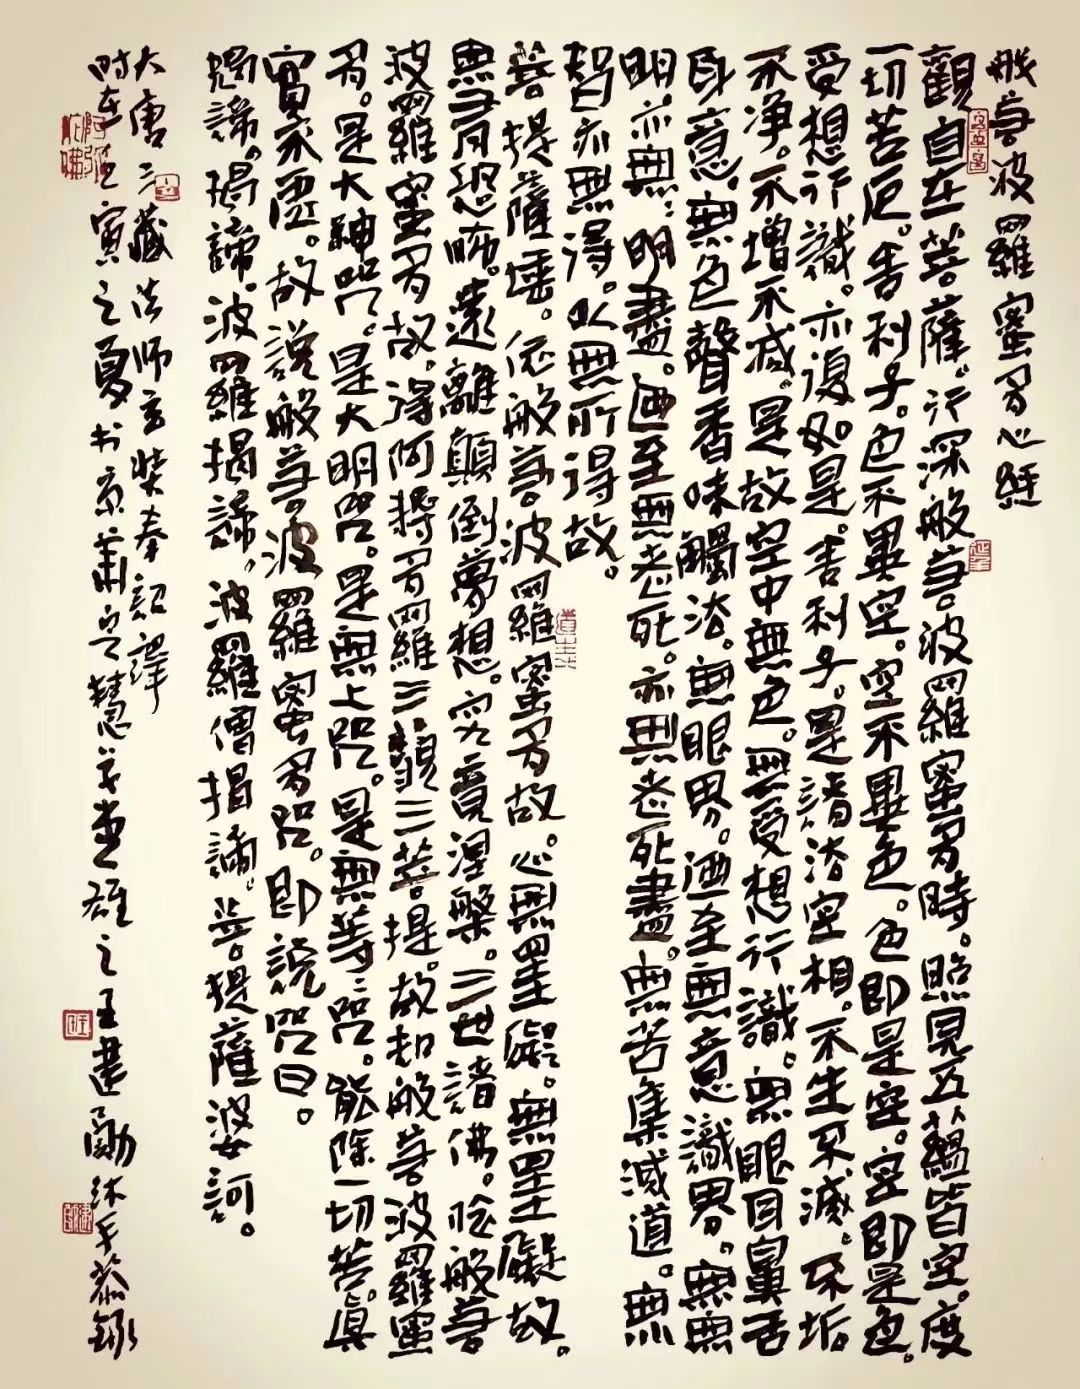 般若波羅蜜多心経
觀自在菩薩。行深般若波羅蜜多時。照見五蘊皆空。度
一切苦厄。舍利子。色不異空。空不異色。色即是空。空即是色。
受想行識。亦復如是。舍利子。是諸法空相。不生不滅。不垢
不净。不增不减。是故空中無色。無受想行識。無眼耳鼻舌
身意。無色聲香味觸法。無眼界。迺至無意識界。無無
明。亦無:明盡。迺至無老死。亦無老死盡。無苦集滅道。無
智亦無得。以無所得故。
菩提薩埵。依般若波羅蜜多故。心無罣礙。無罣礙故。
無有恐怖。遠離顛倒夢想。究竟涅槃。三世諸佛。依般若
波羅蜜多故。得阿耨多羅三藐三菩提。故知般若波羅蜜
多。是大神咒。是大明咒。是無上咒。是無等:咒。能除一切苦。真
實不虛。故說般若波羅蜜多咒。即說咒曰。
揭諦。揭諦。波羅揭諦。波羅僧揭諦。菩提薩婆訶。
大唐三藏法師玄奘奉詔譯
時在壬寅之夏於京蕭之慧堂雄之王建勛沐手恭錄